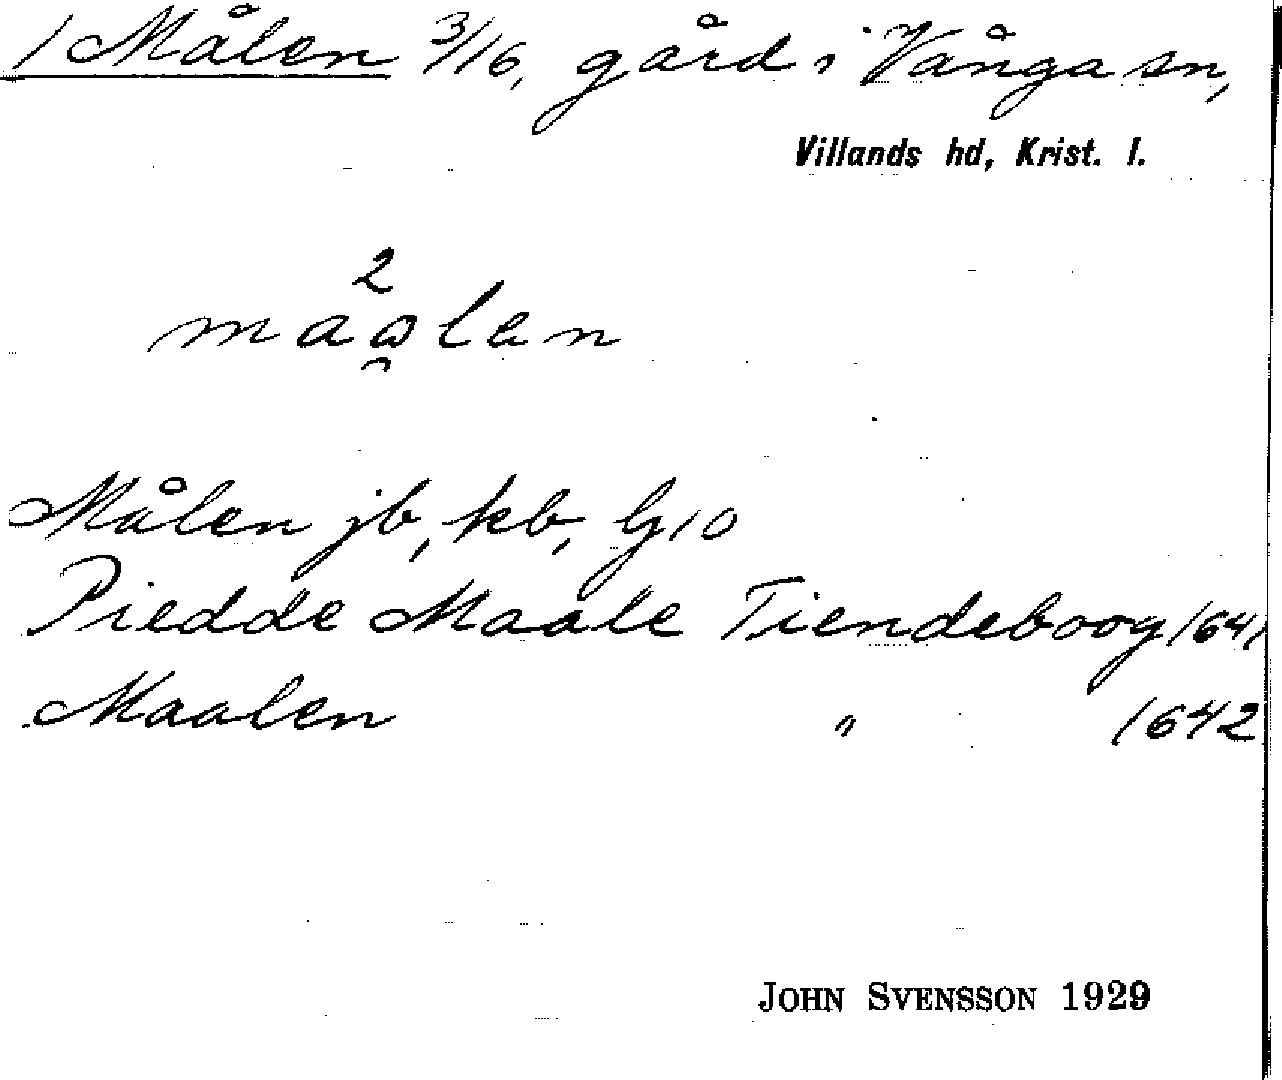 1 Målen 3/16, gård i Vånga sn,
Villands hd, Krist. l.
2
maalen
Målen jb, kb, Gj10
Piedde Maale Tiendeboog 1641
Maalen " 1642
JOHN SVENSSON 1929